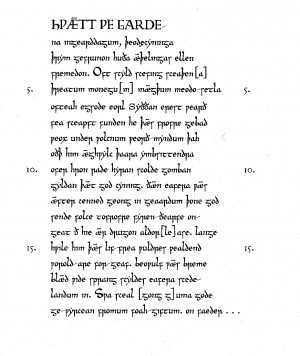 HǷÆTT ǷE GARDE-
na ingearddagum, þeodcyninga
þrym gefrunon huða æþelingas ellen
fremedon. Oft scyld scefing sceaþen[a]
5. þreatum monegu[m] mægþum meodo-setla 5.
ofteah egsode eorl Syððan erest ƿearð
fea sceaft funden he þæs frofre gebad
ƿeox under ƿolcnum ƿeorð-myndum þah
oðþ him æghƿylc þaara ymbsittendra
10. ofer hron rade hyran scolde gomban 10.
gyldan þæt god cyning. ðæm eafera ƿæs
æfter cenned geong in geardum þone god
sende folce tofrofre fyren-ðearfe on-
geat þ hie ær drugon aldor[le]ase. lange
15. hƿile him þæs lif-frea ƿuldres ƿealdend 15.
ƿorold-are for-geaf. beoƿulf ƿæs breme
blæd ƿide sprang scyldes eafera scede-
landum in. Sƿa sceal [geong g]uma gode
ge-ƿyrcean fromum feoh-giftum. on faeder . . .